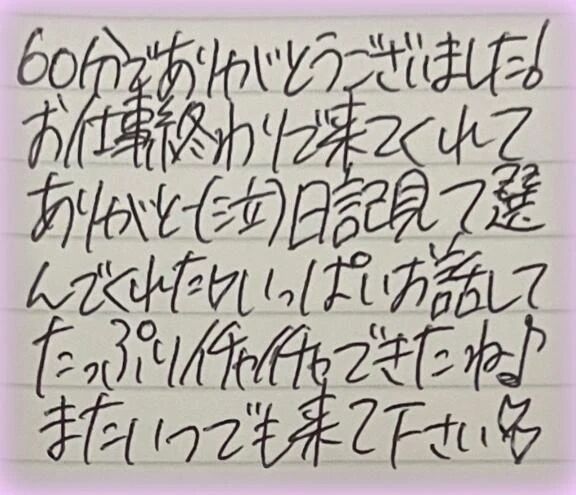 60分でありがとうございました!
お仕事終わりで来てくれて
ありがと(泣)日記見て選
んでくれたりいっぱいお話して
たっぷりイチャイチャできたね♪
またいつでも来て下さい♡